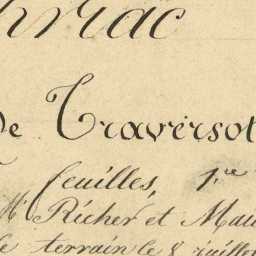 hriac
de Traversot
feuilles, 1.re
Mr Richer et Mau
le terrain le 8 juillet